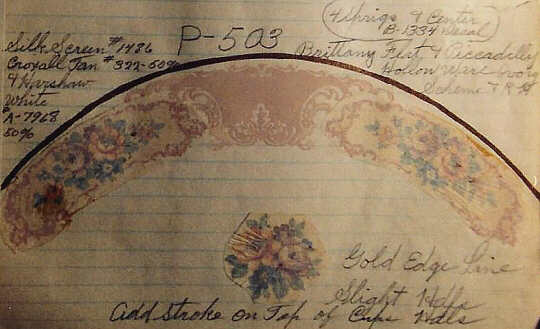 P-503
Silk Screen #1486
Croxall Tan #322-50%
& Harshaw
White
A-7968
50%
4 Sprigs & Center
B-1334 Decal
Brittany Flat & Piccadilly
Hollow Ware Ivory
Scheme
Gold Edge Line
Slight Hdls
Add Stroke on Top of Cups Hdls